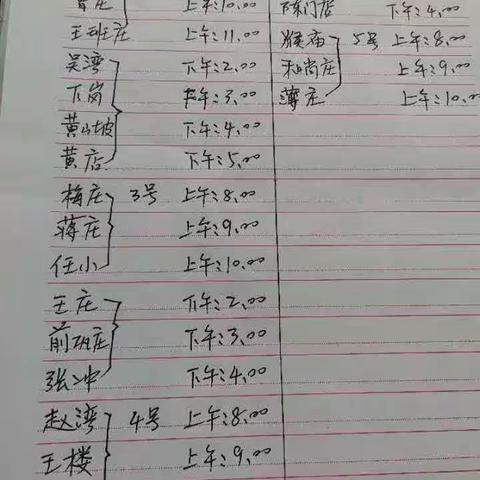 庄 上午:10.00
王班庄 上午:11.00
吴湾 下午:2.00
下岗 下午:3.00
黄山坡 下午:4.00
黄店 下午:5.00
梅庄 3号 上午:8.00
蒋庄 上午:9.00
任小 上午:10.00
王庄 下午:2.00
前班庄 下午:3.00
张冲 下午:4.00
赵湾 4号 上午:8.00
王楼 上午:9.00
陈门店 下午:4.00
猴庙 5号 上午:8.00
和尚庄 上午:9.00
薄庄 上午:10.00